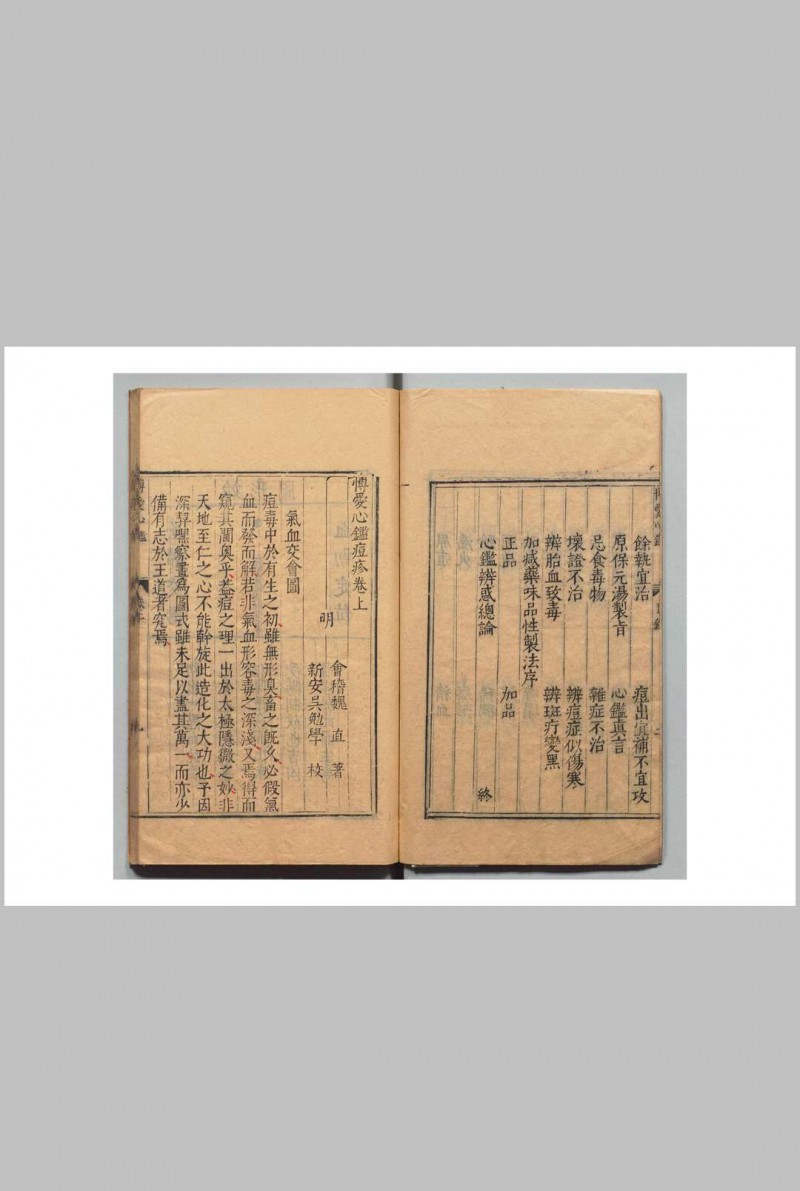 餘執宜治 痘出宜補不宜攻
原保元湯製旨 心鑑真言
忌食毒物 雜症不治
壞證不治 辨痘症似傷寒
辨胎血致毒 辨斑疔變黑
加減藥味品性製法序
正品 加品
心鑑辨惑總論 終
博愛心鑑痘疹卷上
明 會稽魏直著
新安吳勉學校
氣血交會圖
痘毒中於有生之初雖無形臭畜之既久必假氣
血而發而解若非氣血形容毒之深淺又焉得而
窺其閫奧乎蓋痘之理一出於太極隱微之妙非
天地至仁之心不能斡旋此造化之大功也予因
深契嘿察畫為圖式雖未足以盡其萬一而亦少
備有志於王道者究焉